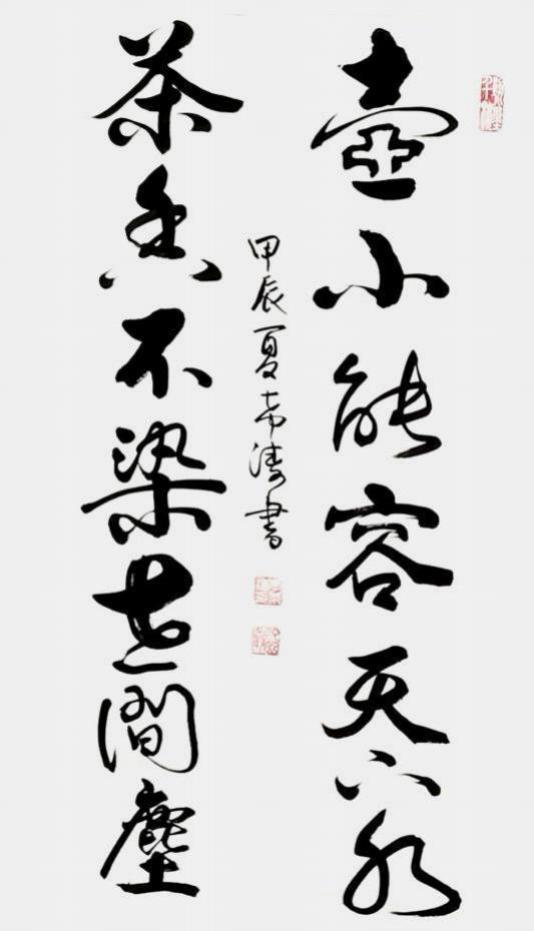 壺小能容天下水
茶香不染世間塵
甲辰夏希濤書